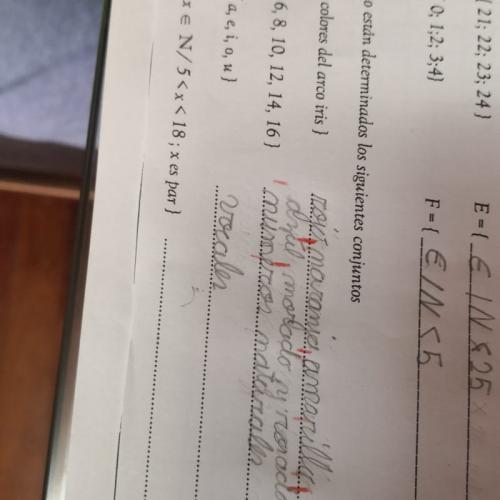 { 21; 22; 23; 24 } E = { ∈ IN < 25
0; 1;2; 3;4} F = { ∈ IN < 5
o están determinados los siguientes conjuntos
colores del arco iris } naranja, amarillo
azul, morado y rosado
6, 8, 10, 12, 14, 16 } numeros naturales
a, e, i, o, u } vocales
x ∈ N / 5 < x < 18 ; x es par }